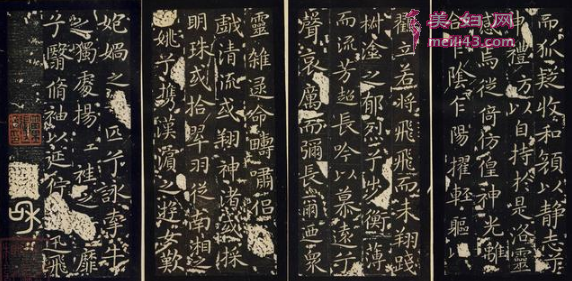 美妇网
meili43.com
而狐疑收和顏以靜志兮
申禮防以自持於是洛靈
感焉徙倚仿偟神光離
合乍陰乍陽擢輕軀以
鶴立若將飛飛而未翔踐
椒塗之郁烈兮步衡薄
而流芳超長吟以慕遠兮
聲哀厲而彌長爾迺衆
靈雜遝命疇嘯侶
戲清流或翔神渚或採
明珠或拾翠羽從南湘之
兮攜漢濱之遊女歎
媧之匹兮詠牽牛
之獨處揚袿之靡
兮翳脩袖以延佇迅飛